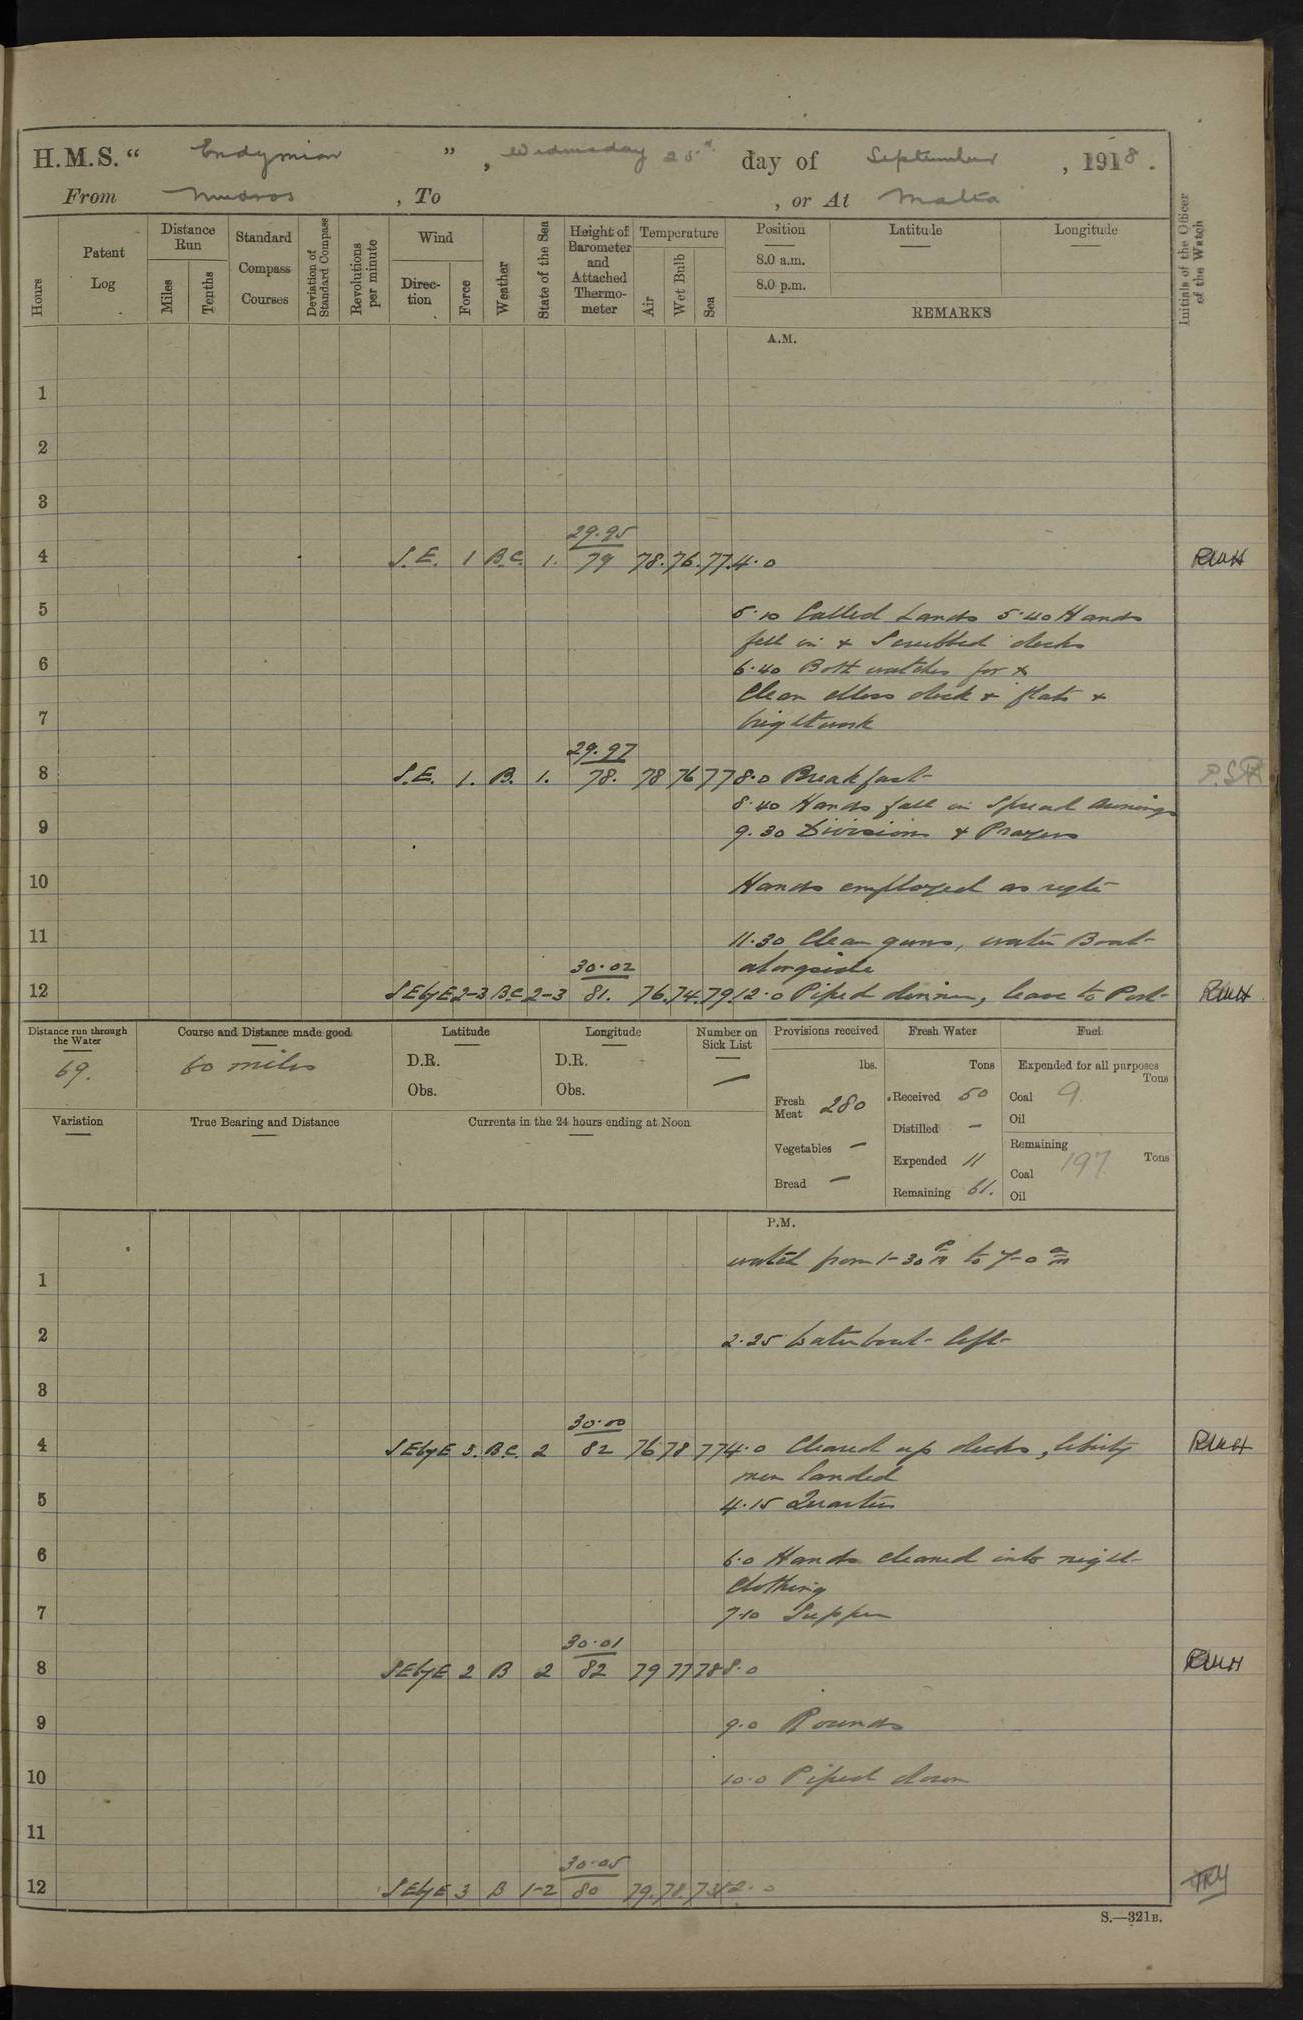 H.M.S. " Endymion ", Wednesday 25th day of September, 1918.
From Mudros, To , or At Malta
Hours
Patent Log
Distance Run
Miles
Tenths
Standard Compass Courses
Deviation of Standard Compass
Revolutions per minute
Wind
Direction
Force
Weather
State of the Sea
Height of Barometer and Attached Thermometer
Temperature
Air
Wet Bulb
Sea
Position
8.0 a.m.
8.0 p.m.
Latitude
Longitude
REMARKS
Initials of the Officer of the Watch
A.M.
1
2
3
29.95
4 S.E. 1 B.C. 1. 79 78. 76. 77. 4.0 RWH
5 5.10 Called hands 5.40 Hands
fell in & Scrubbed decks
6 6.40 Both watches for &
Clean Mess deck & flats &
7 brightwork
29.97
8 S.E. 1. B. 1. 78. 78 76 77 8.0 Breakfast
8.40 Hands fall in Spread Awnings
9 9.30 Divisions & Prayers
10 Hands employed as reqte
11 11.30 Clean guns, water Boat
alongside
30.02
12 SEbyE 2-3 BC 2-3 81. 76. 74. 79 12.0 Piped dinner, leave to Port RWH
Distance run through the Water
69.
Course and Distance made good
60 miles
Latitude
D.R.
Obs.
Longitude
D.R.
Obs.
Number on Sick List
—
Provisions received
lbs.
Fresh Meat 280
Vegetables —
Bread —
Fresh Water
Tons
Received 50
Distilled —
Expended 11
Remaining 61.
Fuel
Expended for all purposes
Tons
Coal 9.
Oil
Remaining
Tons
Coal 197
Oil
Variation
True Bearing and Distance
Currents in the 24 hours ending at Noon
P.M.
watch from 1-30 pm to 7-0 am
1
2 2.25 Waterboat left
3
30.00
4 SEbyE 3. B.C. 2 82 76 78 77 4.0 Cleared up decks, liberty RWH
men landed
5 4.15 Quarters
6 6.0 Hands cleaned into night
Clothing
7 7.10 Supper
30.01
8 SEbyE 2 B 2 82 79 77 78 8.0 RWH
9 9.0 Rounds
10 10.0 Piped down
11
30.05
12 SEbyE 3 B 1-2 80 79. 78. 12.0
S.—321B.